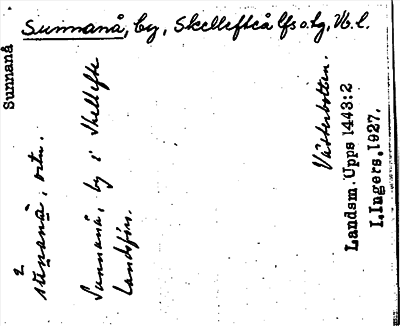 Sunnanå, by, Skellefteå lfs o. tg, Vb. l.
Sunnanå
Sunnanå, by i Skellefte
landsförs.
Västerbotten.
Landsm. Upps 1443:2
I. Ingers. 1927.